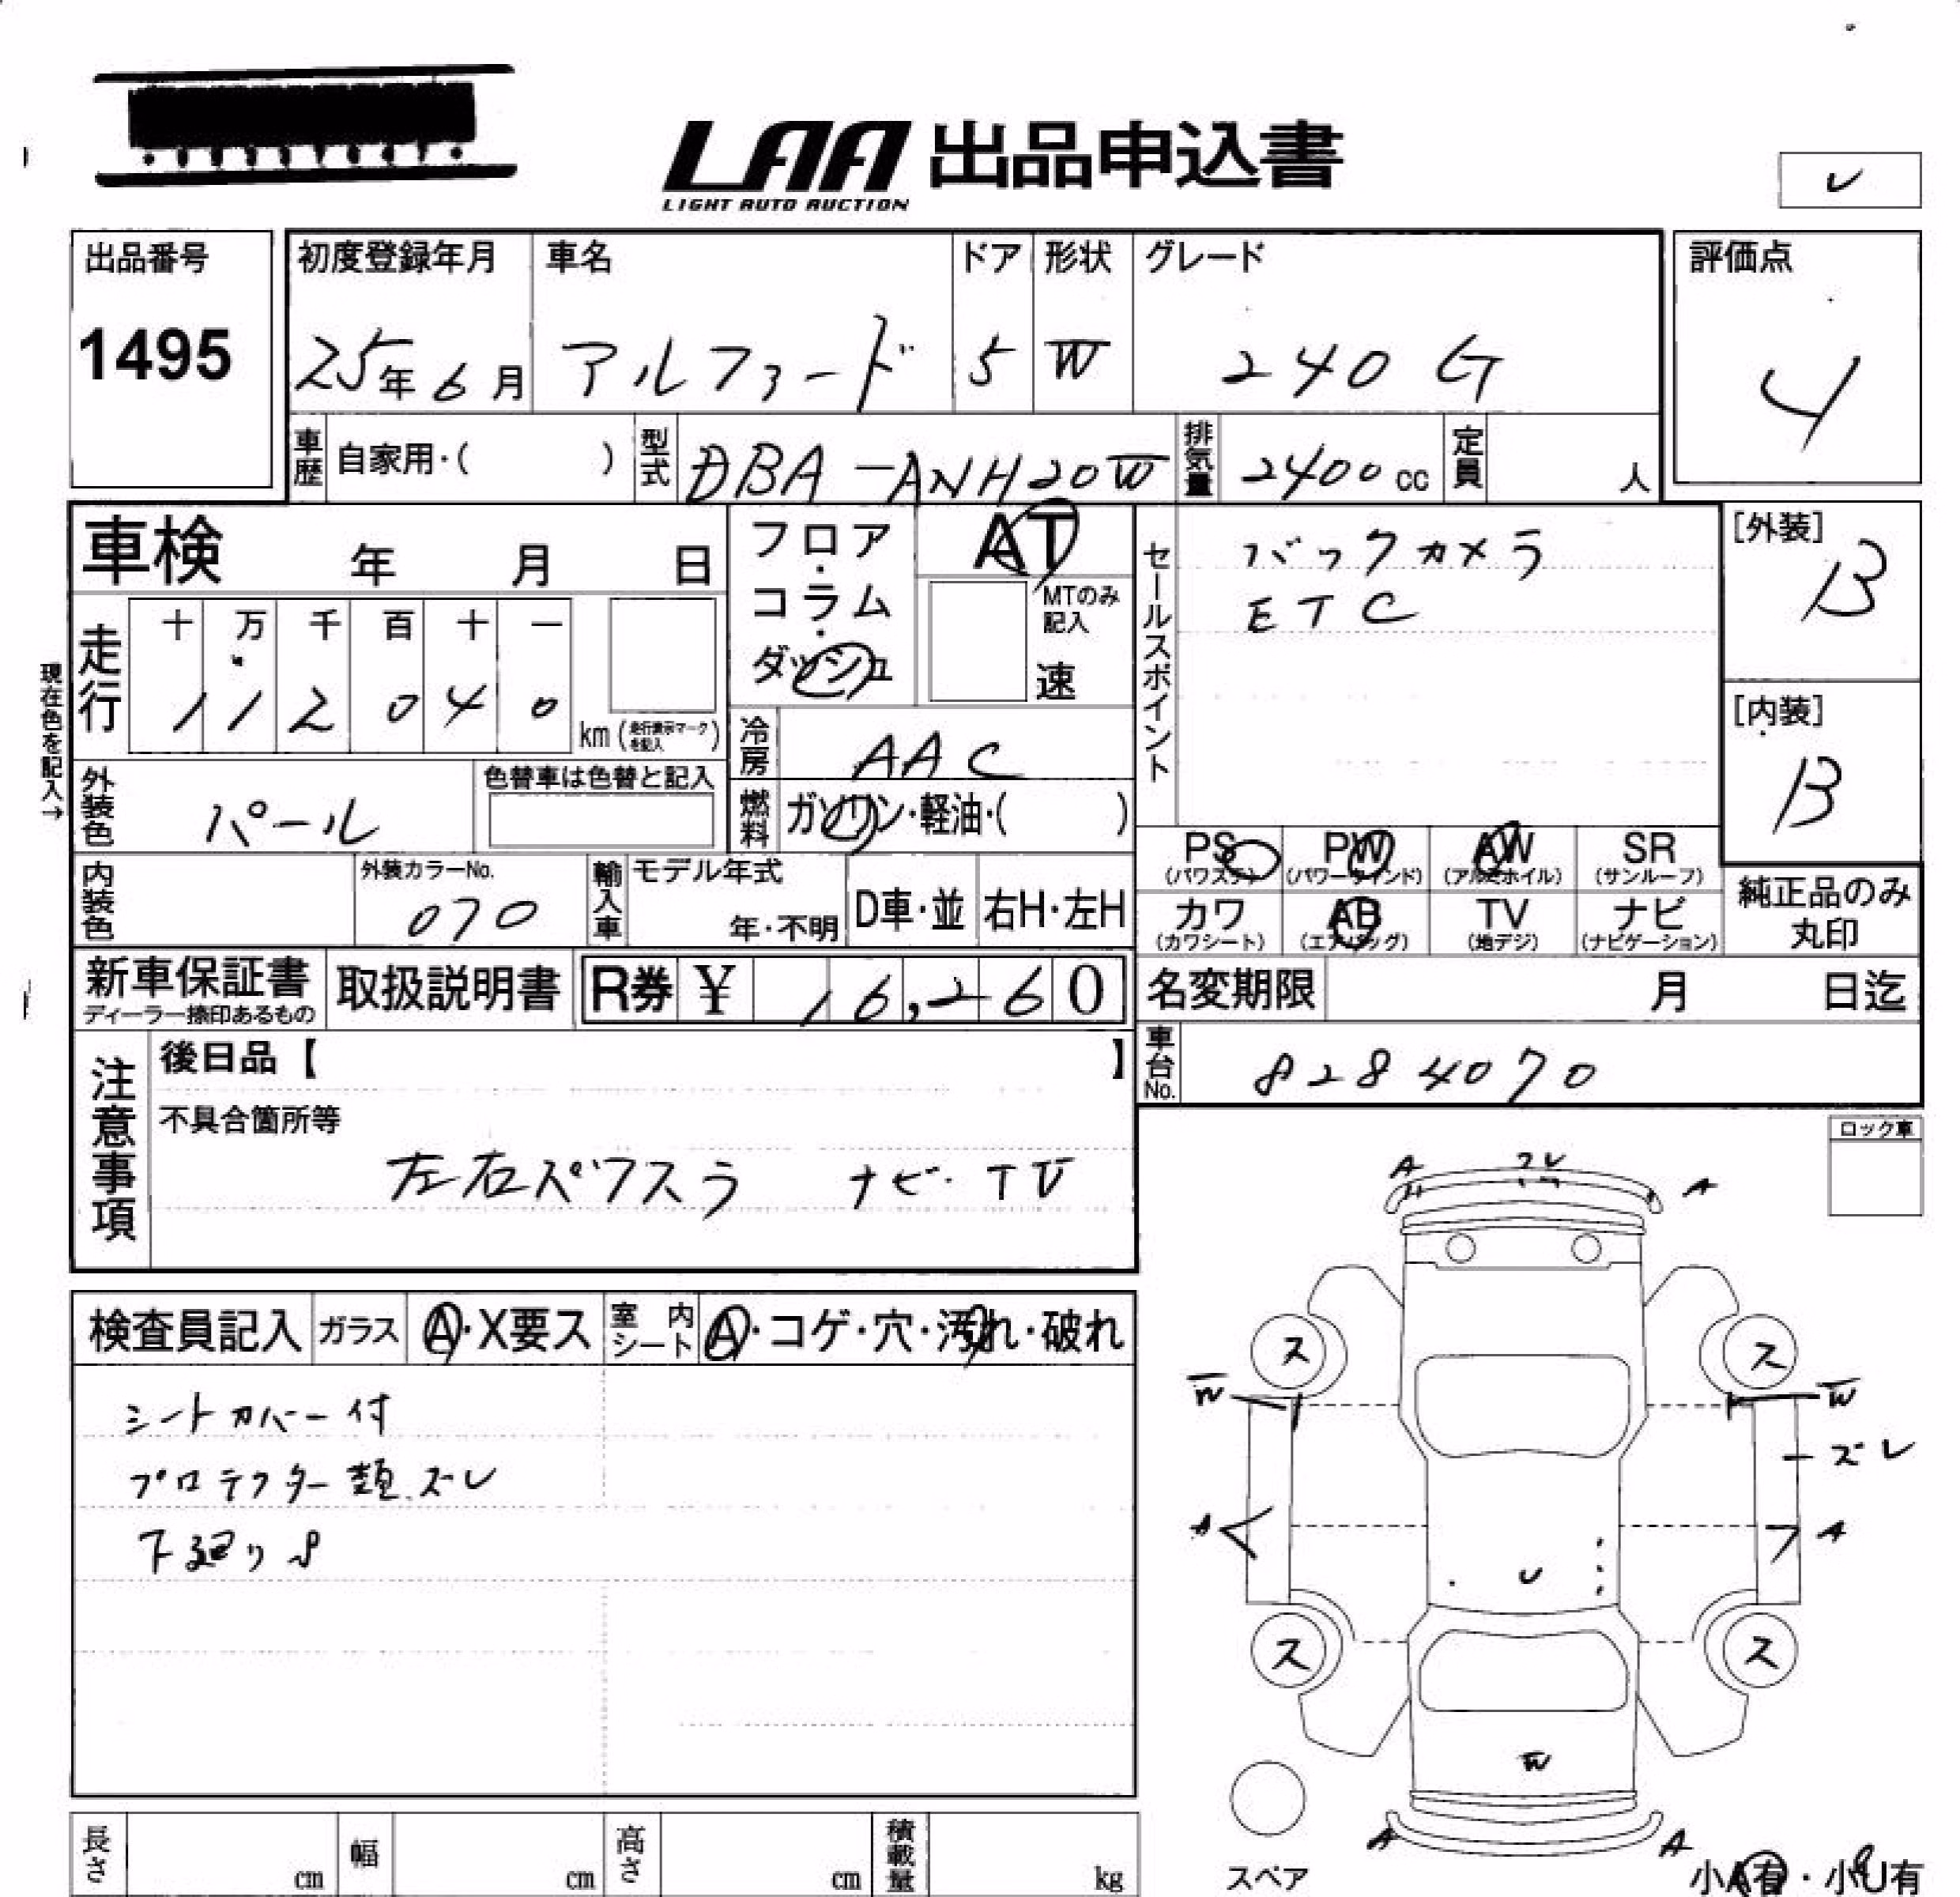 LAA 出品申込書
LIGHT AUTO AUCTION
レ
出品番号
1495
初度登録年月
25年6月
車名
アルファード
ドア
5
形状
W
グレード
240G
評価点
4
車歴
自家用・( )
型式
DBA-ANH20W
排気量
2400cc
定員
人
車検 年 月 日
フロア・コラム・ダッシュ
AT
MTのみ記入
速
セールスポイント
バックカメラ
ETC
[外装]
B
[内装]
B
現在色を記入→
走行
十 万 千 百 十 一
1 1 2 0 4 0
km(走行表示マークを記入)
冷房
AAC
外装色
パール
色替車は色替と記入
燃料
ガソリン・軽油・( )
PS PW AW SR
(パワステ) (パワーウィンド) (アルミホイル) (サンルーフ)
カワ AB TV ナビ
(カワシート) (エアバッグ) (地デジ) (ナビゲーション)
純正品のみ
丸印
内装色
外装カラーNo.
070
輸入車
モデル年式
年・不明
D車・並
右H・左H
新車保証書
ディーラー捺印あるもの
取扱説明書
R券 ¥ 16,260
名変期限 月 日迄
車台No.
8284070
注意事項
後日品【 】
不具合箇所等
左右パワスラ ナビ・TV
ロック車
検査員記入
ガラス
A・X要ス
室内シート
A・コゲ・穴・汚れ・破れ
シートカバー付
プロテクター類ズレ
下廻りS
A フレ A
ス ス
W W
ズレ
A A
U
ス ス
W
A A
スペア
小A有・小U有
長さ cm
幅 cm
高さ cm
積載量 kg